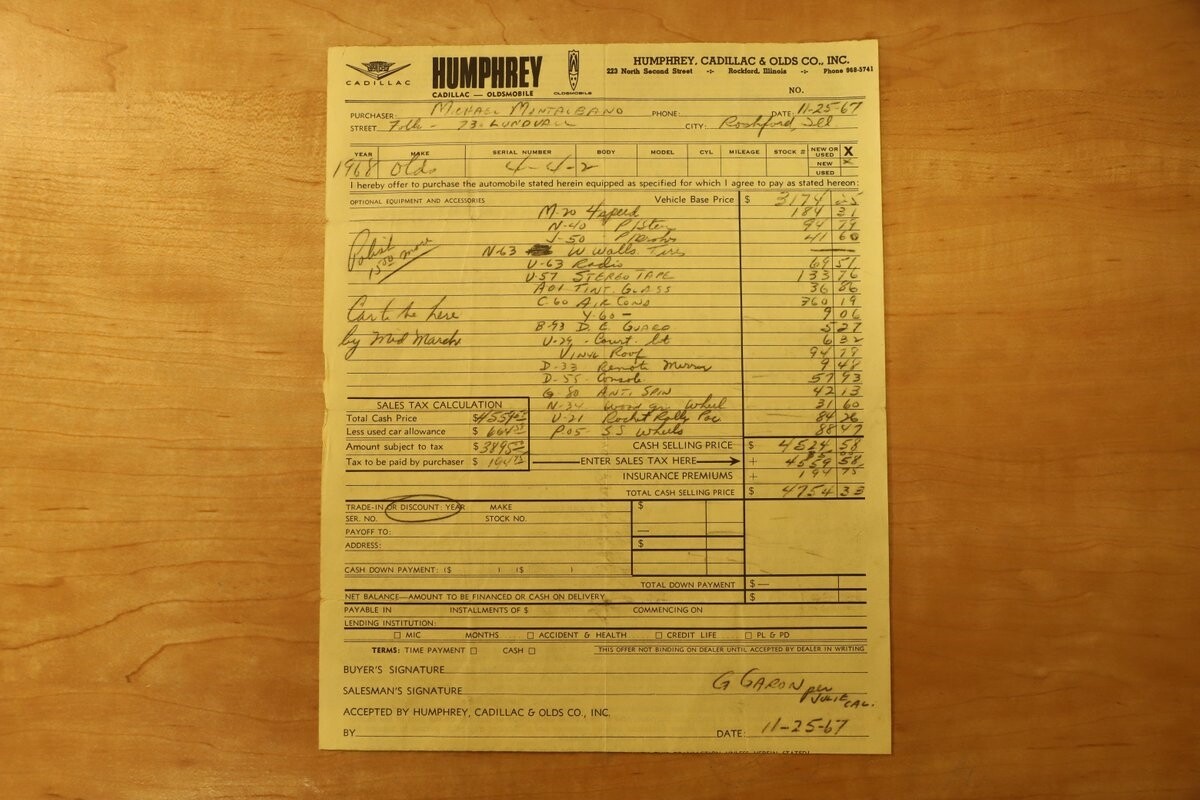 CADILLAC
HUMPHREY
CADILLAC — OLDSMOBILE
OLDSMOBILE
HUMPHREY, CADILLAC & OLDS CO., INC.
223 North Second Street -:- Rockford, Illinois -:- Phone 968-3741
NO.
PURCHASER: MICHAEL MONTALBANO PHONE: DATE: 11-25-67
STREET 73- LUNDVALL CITY: Rockford, Ill
YEAR MAKE SERIAL NUMBER BODY MODEL CYL MILEAGE STOCK # NEW OR USED X
1968 Olds 4-4-2 NEW x
USED
I hereby offer to purchase the automobile stated herein equipped as specified for which I agree to pay as stated hereon:
OPTIONAL EQUIPMENT AND ACCESSORIES Vehicle Base Price $ 3174 25
M-20 4 speed 184 31
N-40 P/Steer 94 79
J-50 P/Brakes 41 60
N-63 W Walls Tires
U-63 Radio 69 51
U-57 STEREO TAPE 133 76
A01 TINT. GLASS 36 86
C-60 AIR COND 360 19
Car to be here
Y-60 - 9 06
B-93 D. E. GUARD 5 27
by Mid March
U-29 - Court. Lt 6 32
VINYL Roof 94 79
D-33 Remote Mirror 9 48
D-55 - Console 57 93
G 80 ANTI SPIN 42 13
N-34 Wood gr. Wheel 31 60
U-21 Rocket Rally Pac 84 26
P-05 - S S Wheels 88 47
SALES TAX CALCULATION
Total Cash Price $
Less used car allowance $
Amount subject to tax $
Tax to be paid by purchaser $
CASH SELLING PRICE $ 4524 58
ENTER SALES TAX HERE + 4559 58
INSURANCE PREMIUMS + 194 75
TOTAL CASH SELLING PRICE $ 4754 33
TRADE-IN OR DISCOUNT: YEAR MAKE $
SER. NO. STOCK NO.
PAYOFF TO: —
ADDRESS: $
CASH DOWN PAYMENT: ($ ) ($ )
TOTAL DOWN PAYMENT $ —
NET BALANCE—AMOUNT TO BE FINANCED OR CASH ON DELIVERY $
PAYABLE IN INSTALLMENTS OF $ COMMENCING ON
LENDING INSTITUTION:
☐ MIC MONTHS ☐ ACCIDENT & HEALTH ☐ CREDIT LIFE ☐ PL & PD
TERMS: TIME PAYMENT ☐ CASH ☐ THIS OFFER NOT BINDING ON DEALER UNTIL ACCEPTED BY DEALER IN WRITING
BUYER'S SIGNATURE
SALESMAN'S SIGNATURE G GARON per JULIE CAL.
ACCEPTED BY HUMPHREY, CADILLAC & OLDS CO., INC.
BY DATE: 11-25-67